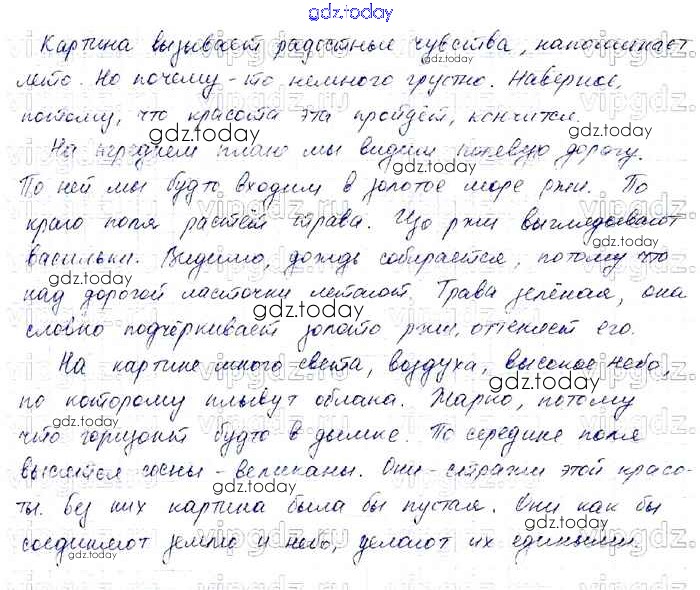 gdz.today
Картина вызывает радостные чувства, напоминает
лето. Но почему-то немного грустно. Наверное,
потому, что красота эта пройдёт, кончится.
На переднем плане мы видим полевую дорогу.
По ней мы будто входим в золотое море ржи. По
краю поля растёт трава. Изо ржи выглядывают
васильки. Видимо, дождь собирается, потому что
над дорогой ласточки летают. Трава зелёная, она
словно подчёркивает золото ржи, оттеняет его.
На картине много света, воздуха, высокое небо,
по которому плывут облака. Жарко, потому
что горизонт будто в дымке. По середине поля
высятся сосны-великаны. Они-стражи этой красо-
ты. Без них картина была бы пустая. Они как бы
соединяют землю и небо, делают их едиными.